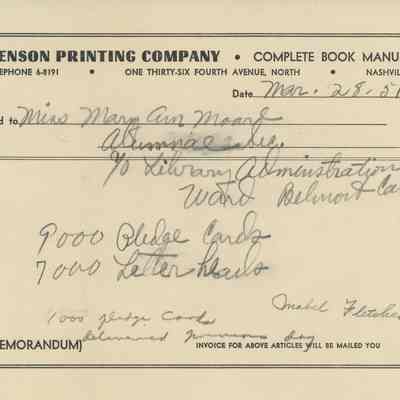 ENSON PRINTING COMPANY • COMPLETE BOOK MANU
EPHONE 6-8191 • ONE THIRTY-SIX FOURTH AVENUE, NORTH • NASHVIL
Date Mar. 28-51
d to Miss Mary Ann Moard
Alumnae Sec.
% Library Adminstration
Ward Belmont Ca
9000 Pledge Cards
7000 Letter heads
Mabel Fletcher
1000 pledge Cards
delivered day
MEMORANDUM) INVOICE FOR ABOVE ARTICLES WILL BE MAILED YOU